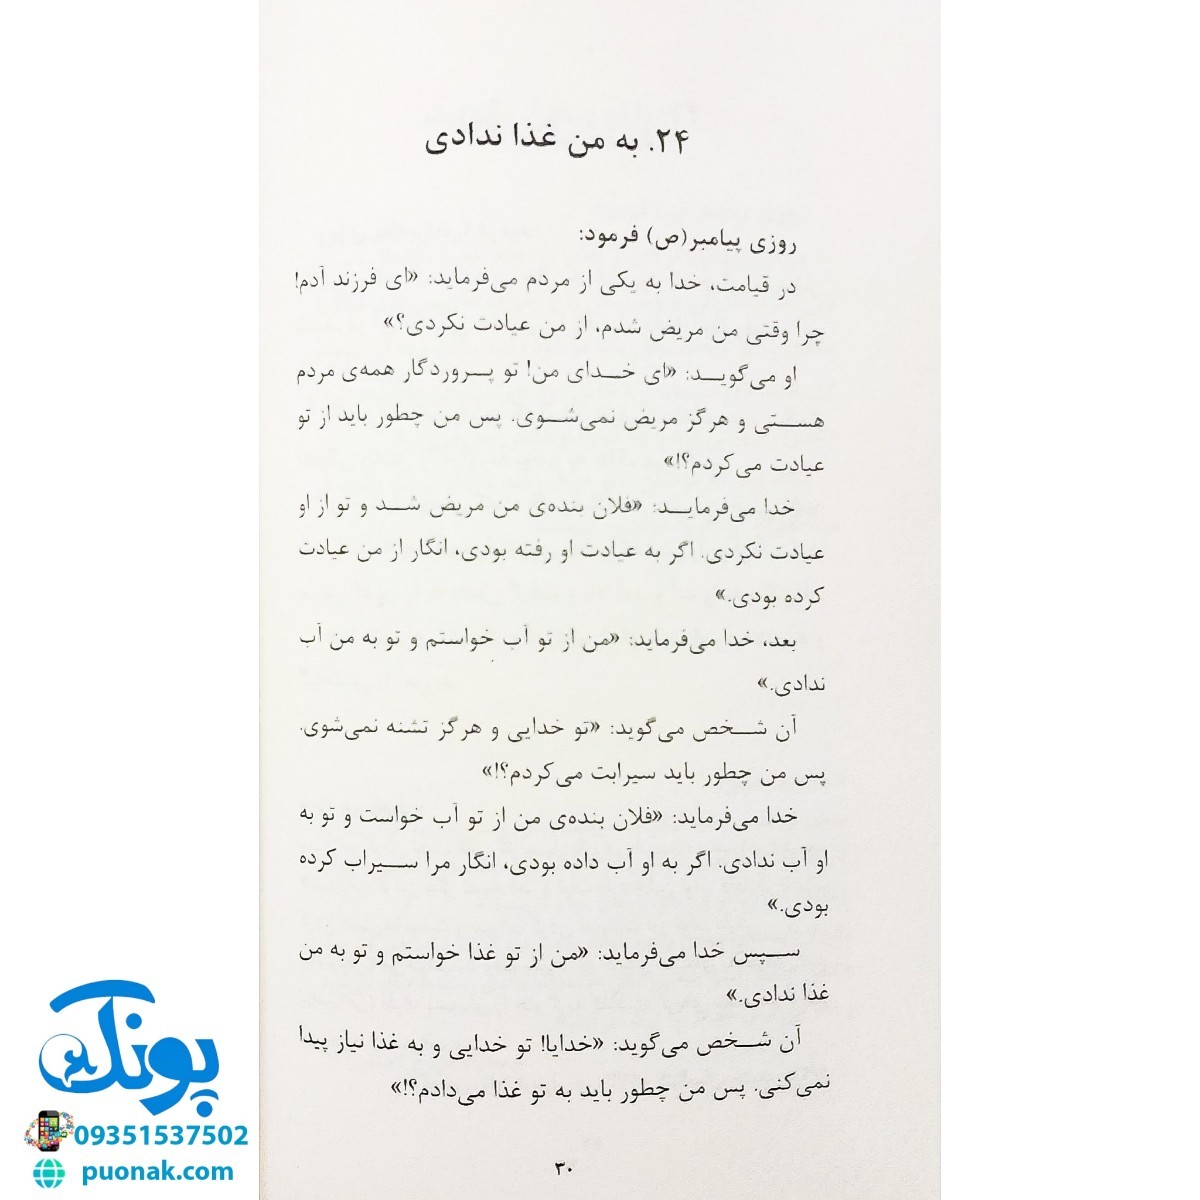 ۲۴. به من غذا ندادی
روزی پیامبر(ص) فرمود:
در قیامت، خدا به یکی از مردم می‌فرماید: «ای فرزند آدم!
چرا وقتی من مریض شدم، از من عیادت نکردی؟»
او می‌گویـــد: «ای خـــدای من! تو پـــروردگار همه‌ی مردم
هســـتی و هرگز مریض نمی‌شـــوی. پس من چطور باید از تو
عیادت می‌کردم؟!»
خدا می‌فرمایـــد: «فلان بنده‌ی من مریض شـــد و تو از او
عیادت نکردی. اگر به عیادت او رفته بودی، انگار از من عیادت
کرده بودی.»
بعد، خدا می‌فرماید: «من از تو آب خواستم و تو به من آب
ندادی.»
آن شـــخص می‌گوید: «تو خدایی و هرگز تشنه نمی‌شوی.
پس من چطور باید سیرابت می‌کردم؟!»
خدا می‌فرماید: «فلان بنده‌ی من از تو آب خواست و تو به
او آب ندادی. اگر به او آب داده بودی، انگار مرا ســـیراب کرده
بودی.»
ســـپس خدا می‌فرماید: «من از تو غذا خواستم و تو به من
غذا ندادی.»
آن شـــخص می‌گوید: «خدایا! تو خدایی و به غذا نیاز پیدا
نمی‌کنی. پس من چطور باید به تو غذا می‌دادم؟!»
۳۰
پونک
09351537502
puonak.com